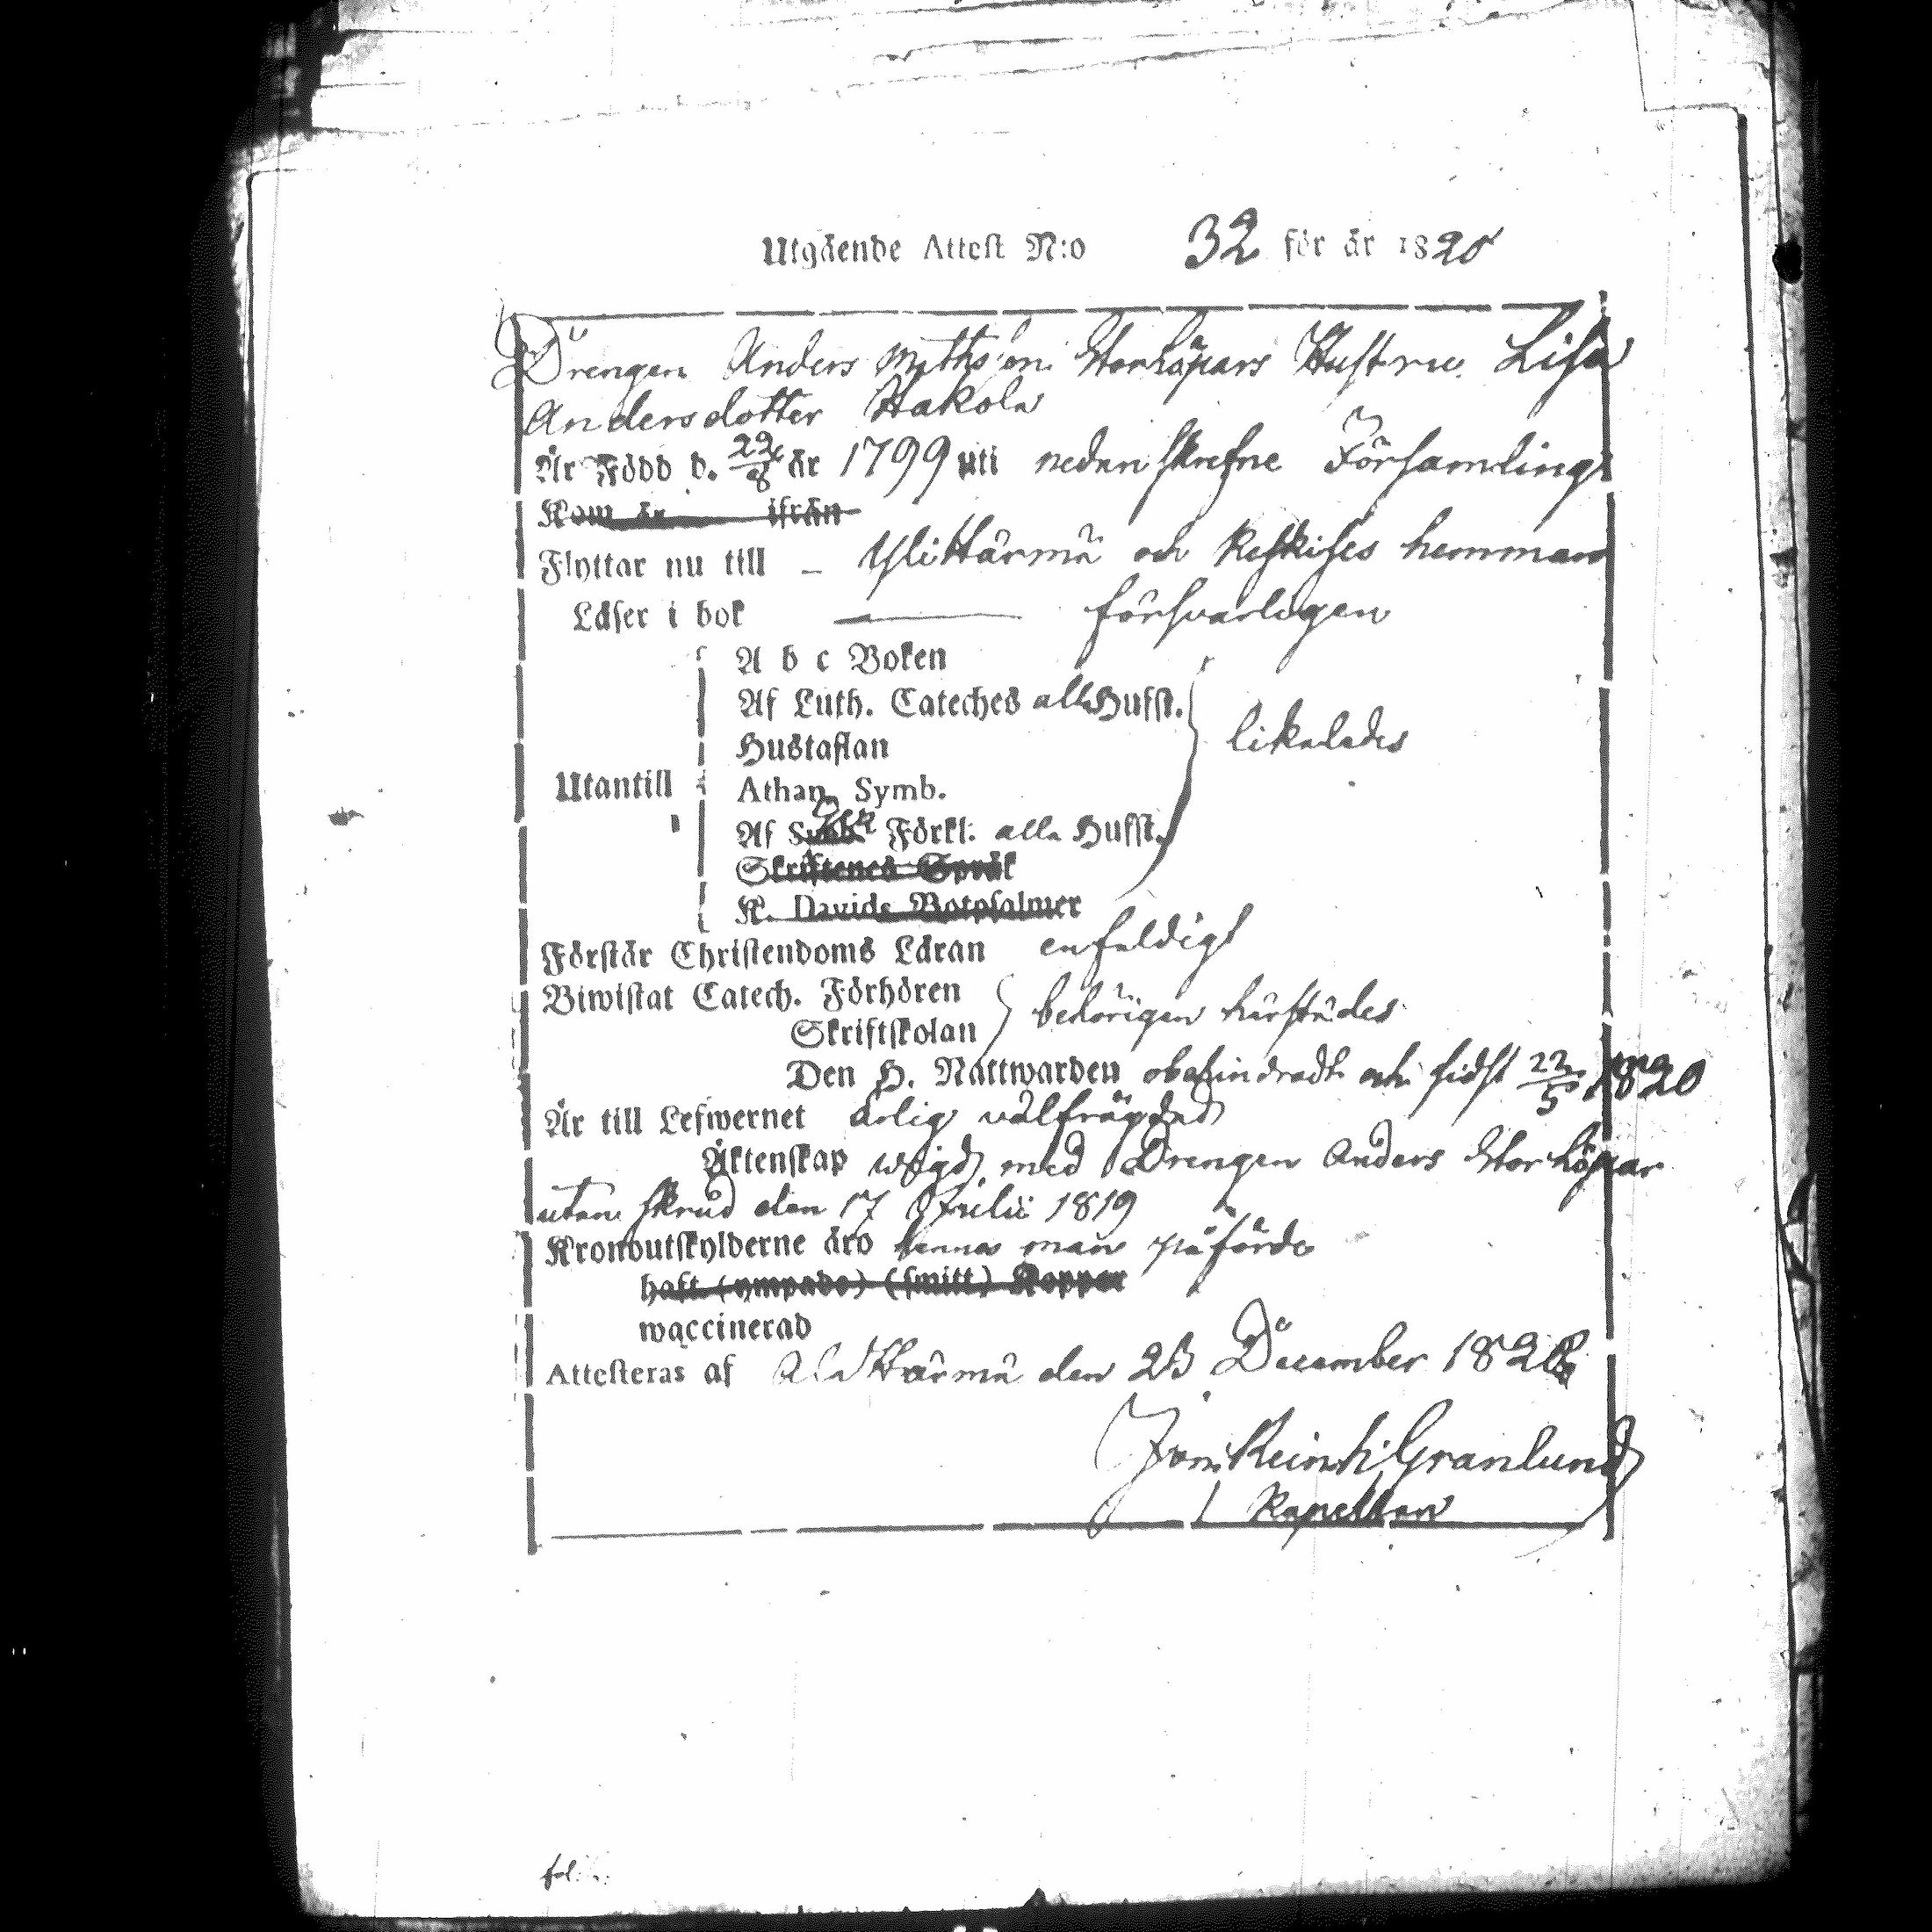 Utgående Attest N:o 32 för år 1820
Drengen Anders Mathsson Storkåpars Hustru Lisa
Andersdotter Hakola
Är Född d. 22/8 år 1799 uti nedanskrefne Församling
Kom år ifrån
Flyttar nu till – Ylihärmä och Keskises hemman
Läser i bok — försvarligen
A b c Boken
Af Luth. Cateches alla Hufst.
Hustaflan
likaledes
Utantill
Athan. Symb.
Af Förkl. alla Hufst.
Skriftenes Språk
K. Davids Botpsalmer
Förstår Christendoms Läran enfaldigt
Biwistat Catech. Förhören
Skriftskolan
behörigen härstädes
Den H. Nattwarden obehindradt och sidst 22/5 1820
Är till Lefwernet ärlig välfrägdad
Äktenskap wigd med Drengen Anders Storkåpar
utan skrud den 17 1819
Kronoutskylderne äro hennes man påförde
haft (ympade) (smitt) Koppor
waccinerad
Attesteras af Alahärmä den 23 December 1820
Granlund
Kapellan
fol.